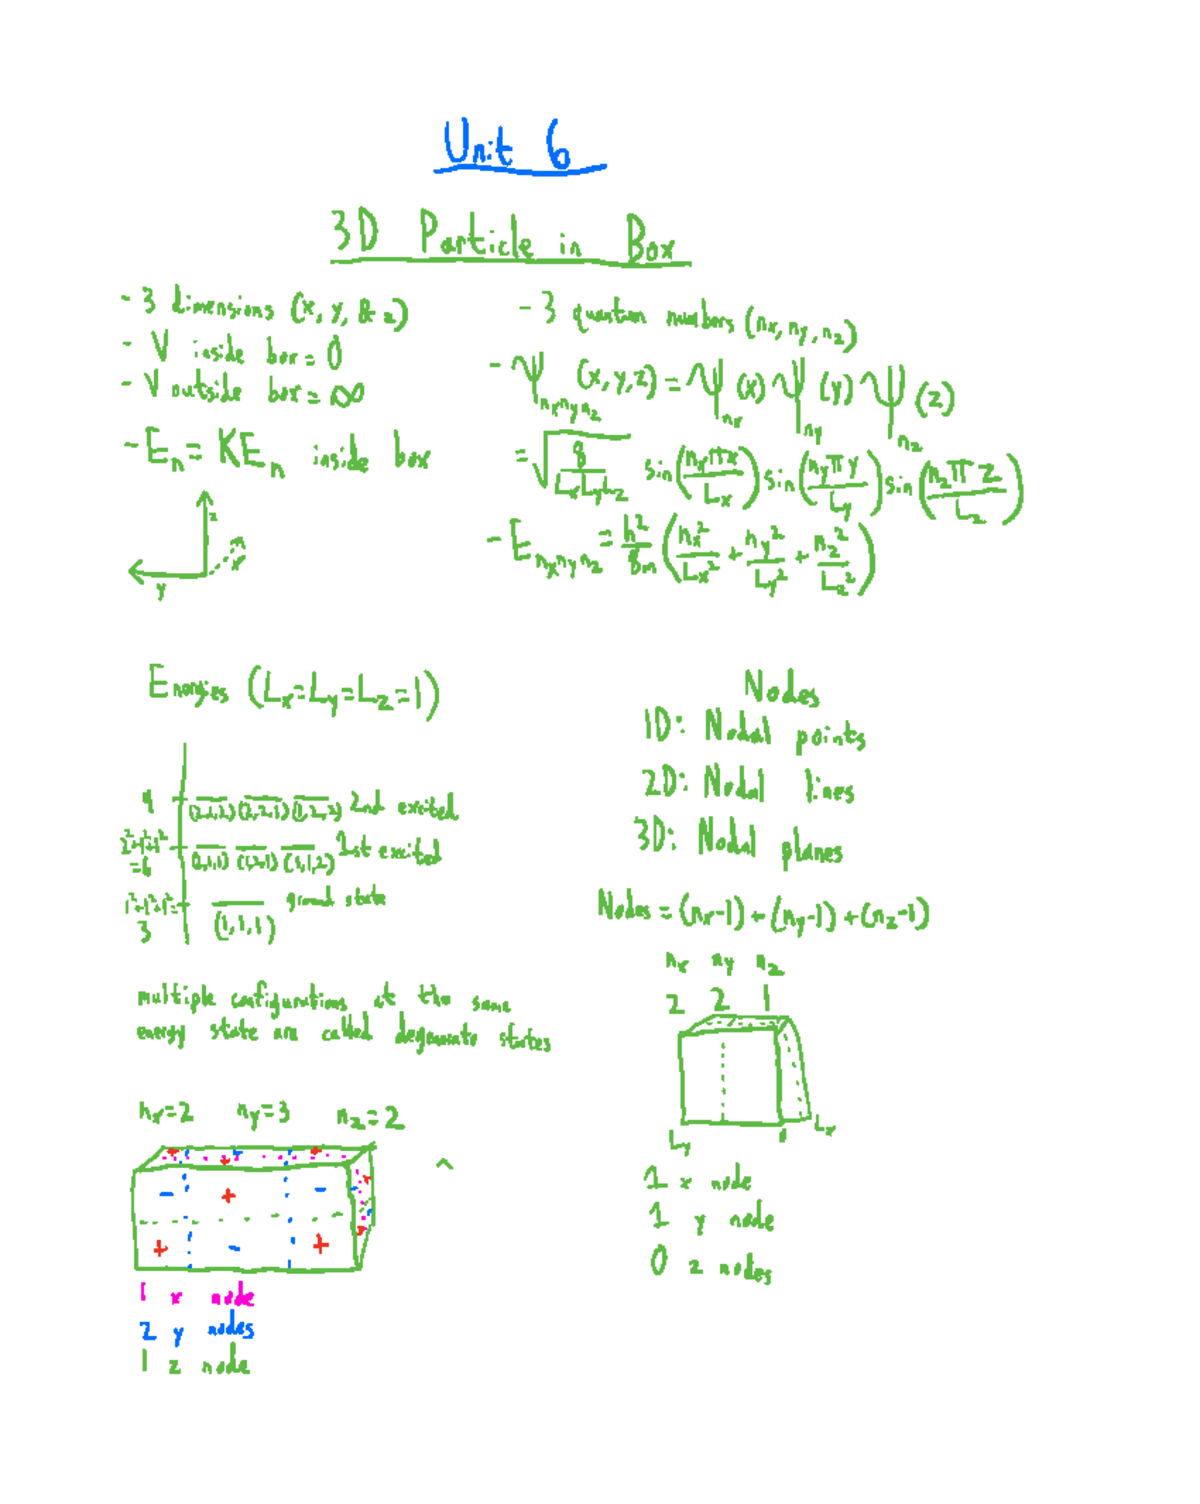 Unit 6
3D Particle in Box
- 3 dimensions (x, y, & z)
- V inside box = 0
- V outside box = ∞
- Eₙ = KEₙ inside box
z
x
y
- 3 quantum numbers (nx, ny, nz)
- Ψnxnynz (x,y,z) = Ψnx (x) Ψny (y) Ψnz (z)
= √(8/(LxLyLz)) sin(nxπx/Lx) sin(nyπy/Ly) sin(nzπz/Lz)
- Enxnynz = h²/8m (nx²/Lx² + ny²/Ly² + nz²/Lz²)
Energies (Lx=Ly=Lz=1)
9 (2,1,2) (2,2,1) (1,2,2) 2nd excited
2²+1²+1² (2,1,1) (1,2,1) (1,1,2) 1st excited
=6
1²+1²+1²= ground state
3 (1,1,1)
multiple configurations at the same
energy state are called degenerate states
nx=2 ny=3 nz=2
+ - +
+
- + -
+ - +
+
-
+
1 x node
2 y nodes
1 z node
Nodes
1D: Nodal points
2D: Nodal lines
3D: Nodal planes
Nodes = (nx-1) + (ny-1) + (nz-1)
nx ny nz
2 2 1
Ly 0 Lx
1 x node
1 y node
0 z nodes